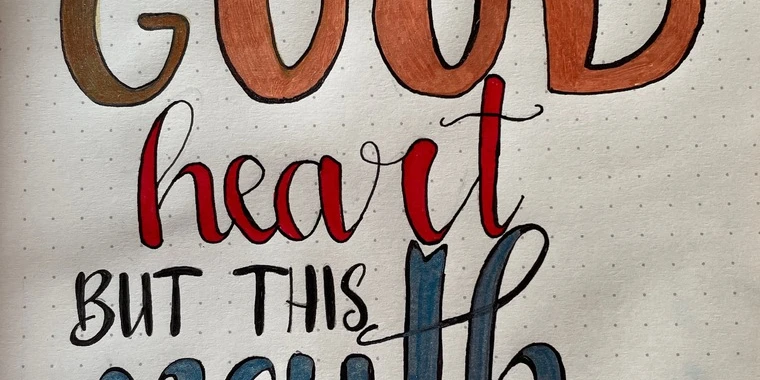 GOOD
heart
BUT THIS
mouth